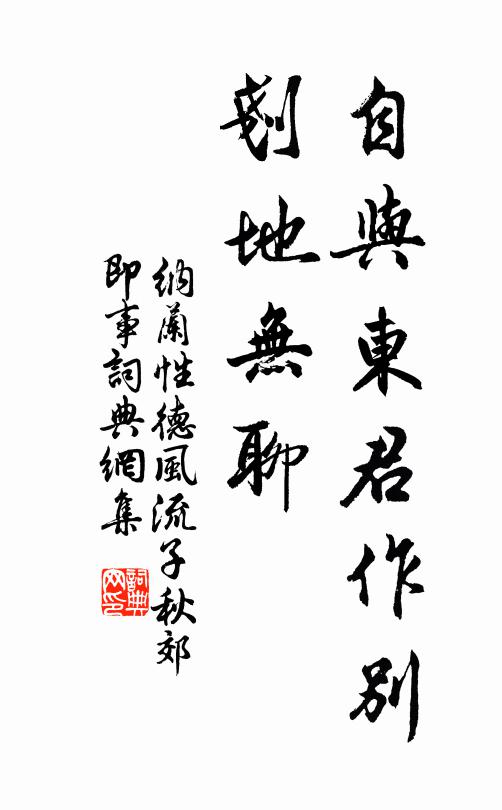 自與東君作別
剗地無聊
納蘭性德風流子秋郊
即事詞典網集
詞典
网印